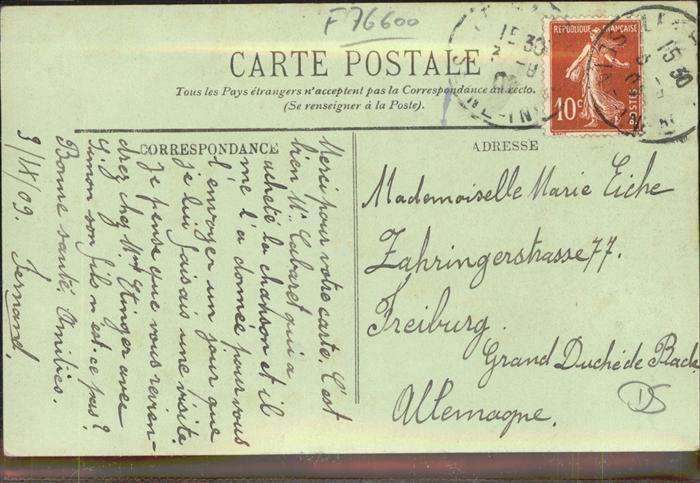 F 76600
CARTE POSTALE
Tous les Pays étrangers n'acceptent pas la Correspondance au recto.
(Se renseigner à la Poste).
CORRESPONDANCE
ADRESSE
RÉPUBLIQUE FRANÇAISE
10c
POSTES
15 30
15 30
Merci pour votre carte. C'est
bien Mr Cabaret qui a
acheté la chanson et il
me l'a donnée pour vous
l'envoyer un jour que
je lui faisais une visite.
Je pense que vous revien-
drez chez Mme Etinger avec
sinon son fils n'est ce pas?
Bonne santé. Amitiés.
3/IX/09. Fernand.
Mademoiselle Marie Eiche
Zahringerstrasse 77.
Freiburg.
Grand Duché de Bade
Allemagne.
DS